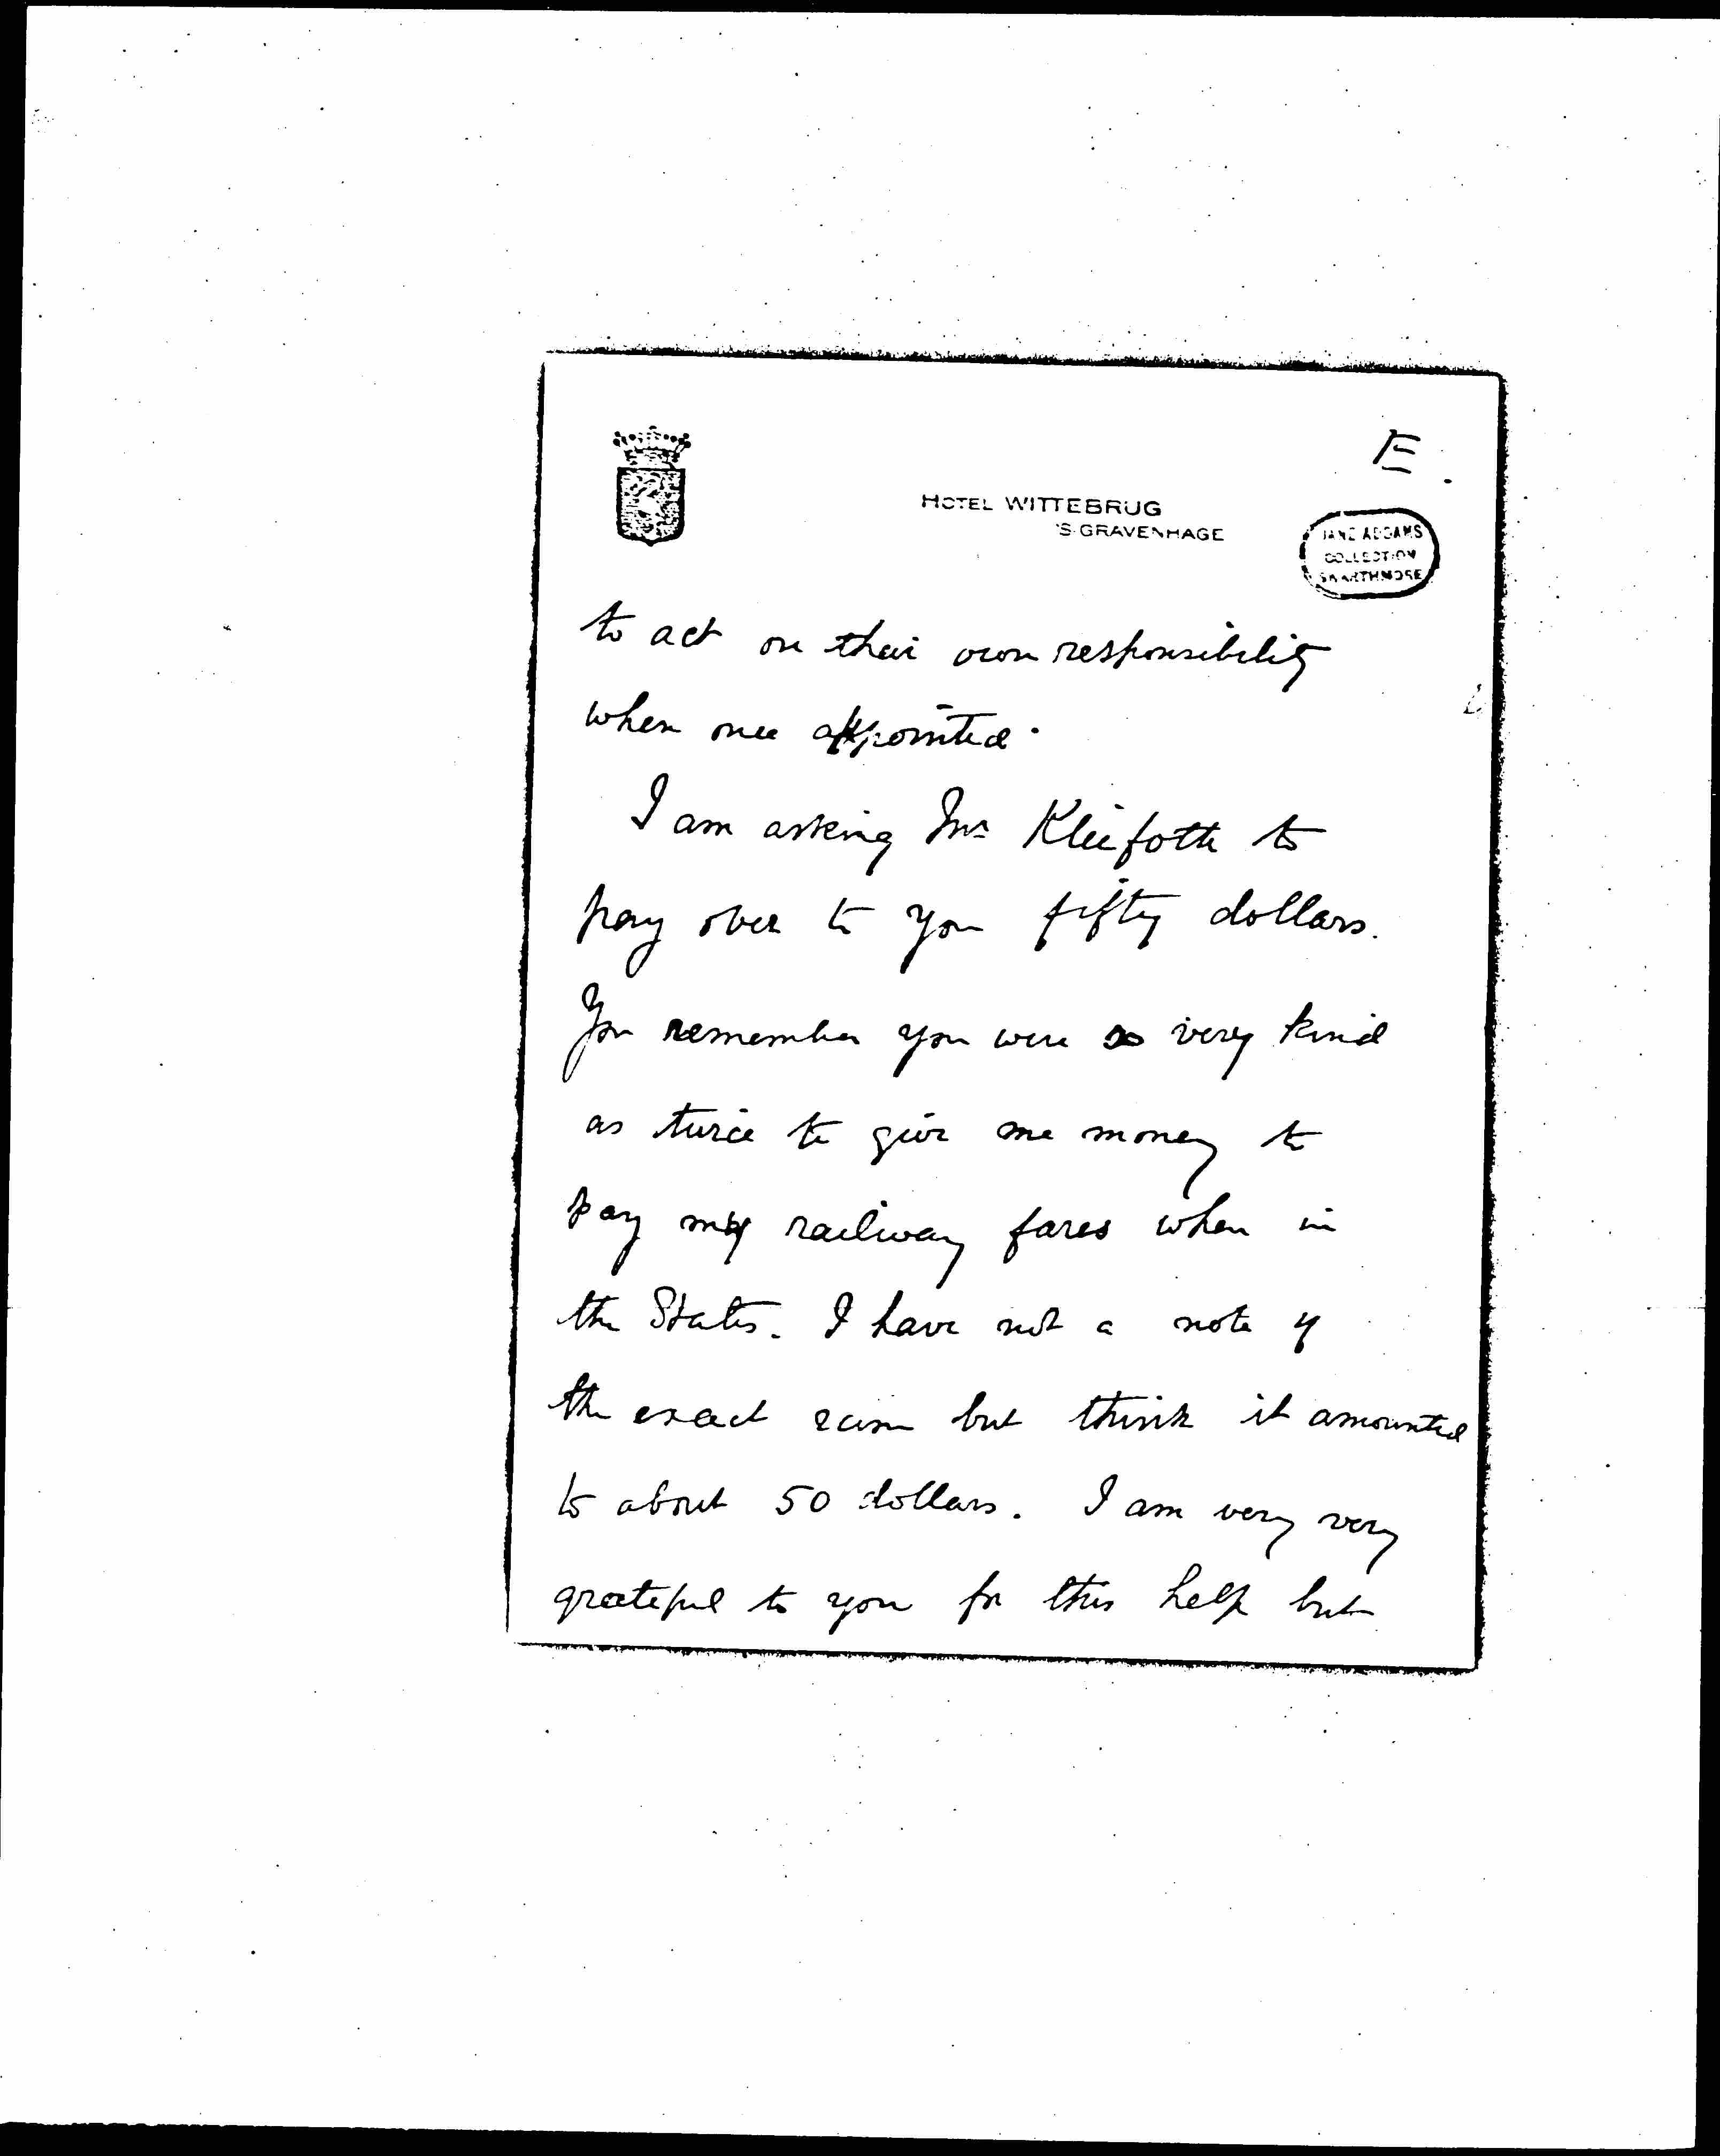 E.
HOTEL WITTEBRUG
'S-GRAVENHAGE
JANE ADDAMS
COLLECTION
SWARTHMORE
to act on their own responsibility
when once appointed.
I am asking Mr Kliefoth to
pay over to you fifty dollars.
You remember you were so very kind
as twice to give me money to
pay my railway fares when in
the States. I have not a note of
the exact sum but think it amounted
to about 50 dollars. I am very very
grateful to you for this help but